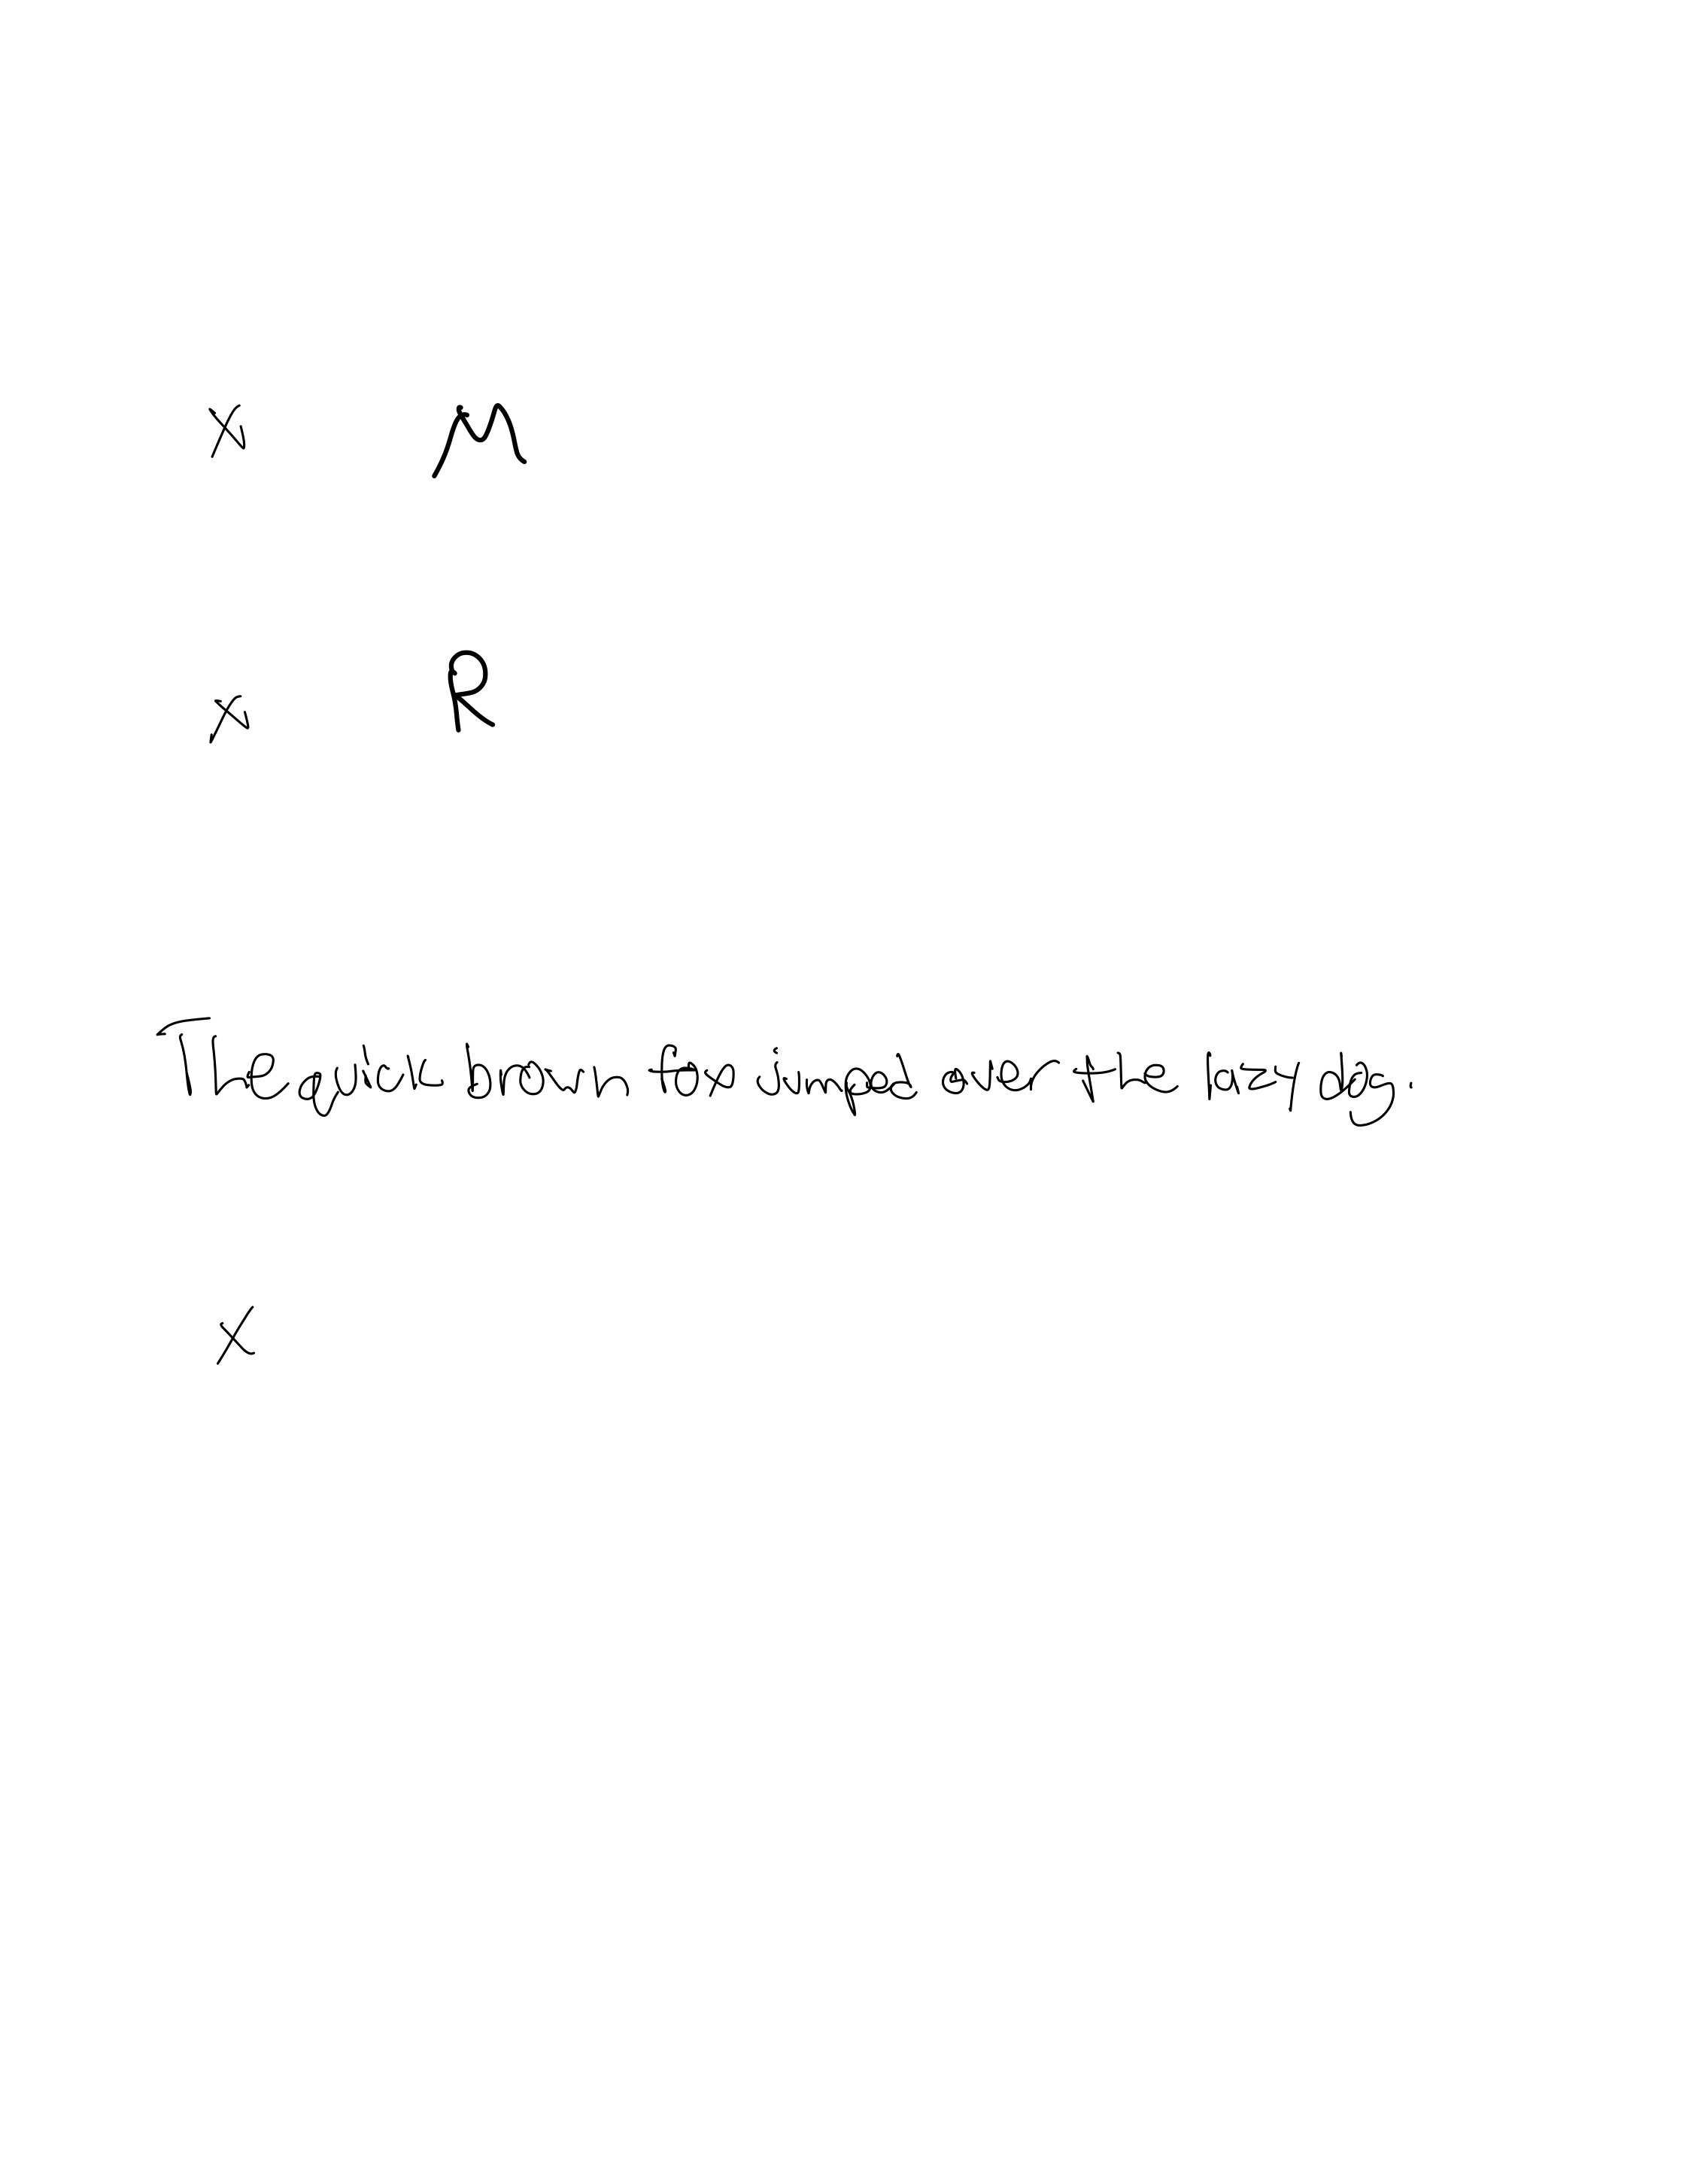 X M
X R
The quick brown fox jumped over the lazy dog.
X